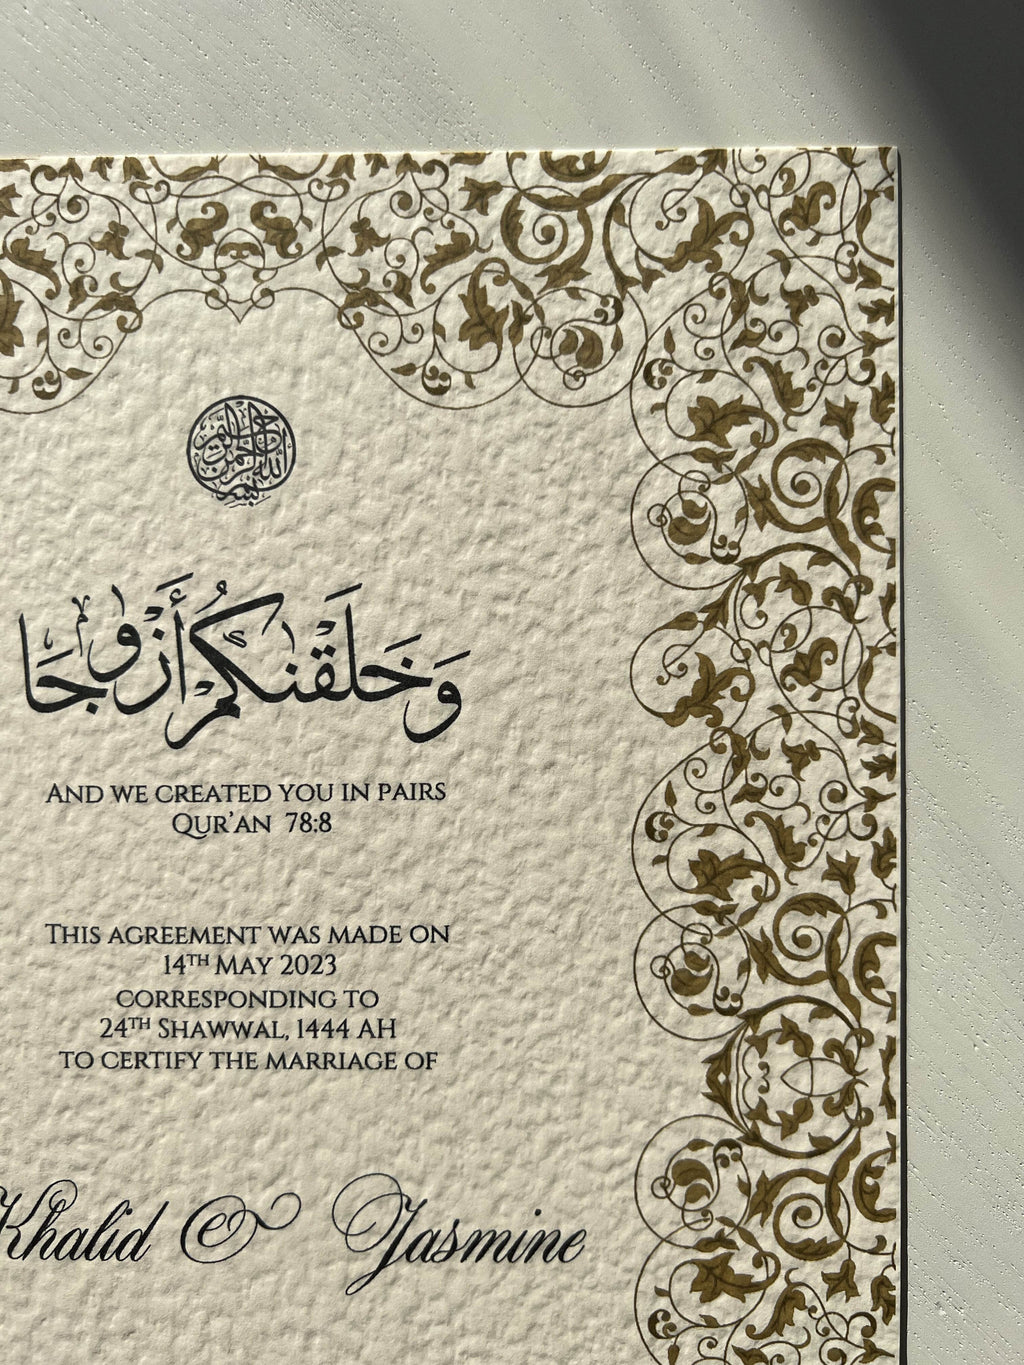 بسم الله الرحمن الرحيم
وَخَلَقْنَٰكُمْ أَزْوَٰجًا
AND WE CREATED YOU IN PAIRS
QUR'AN 78:8
THIS AGREEMENT WAS MADE ON
14TH MAY 2023
CORRESPONDING TO
24TH SHAWWAL, 1444 AH
TO CERTIFY THE MARRIAGE OF
Khalid & Jasmine